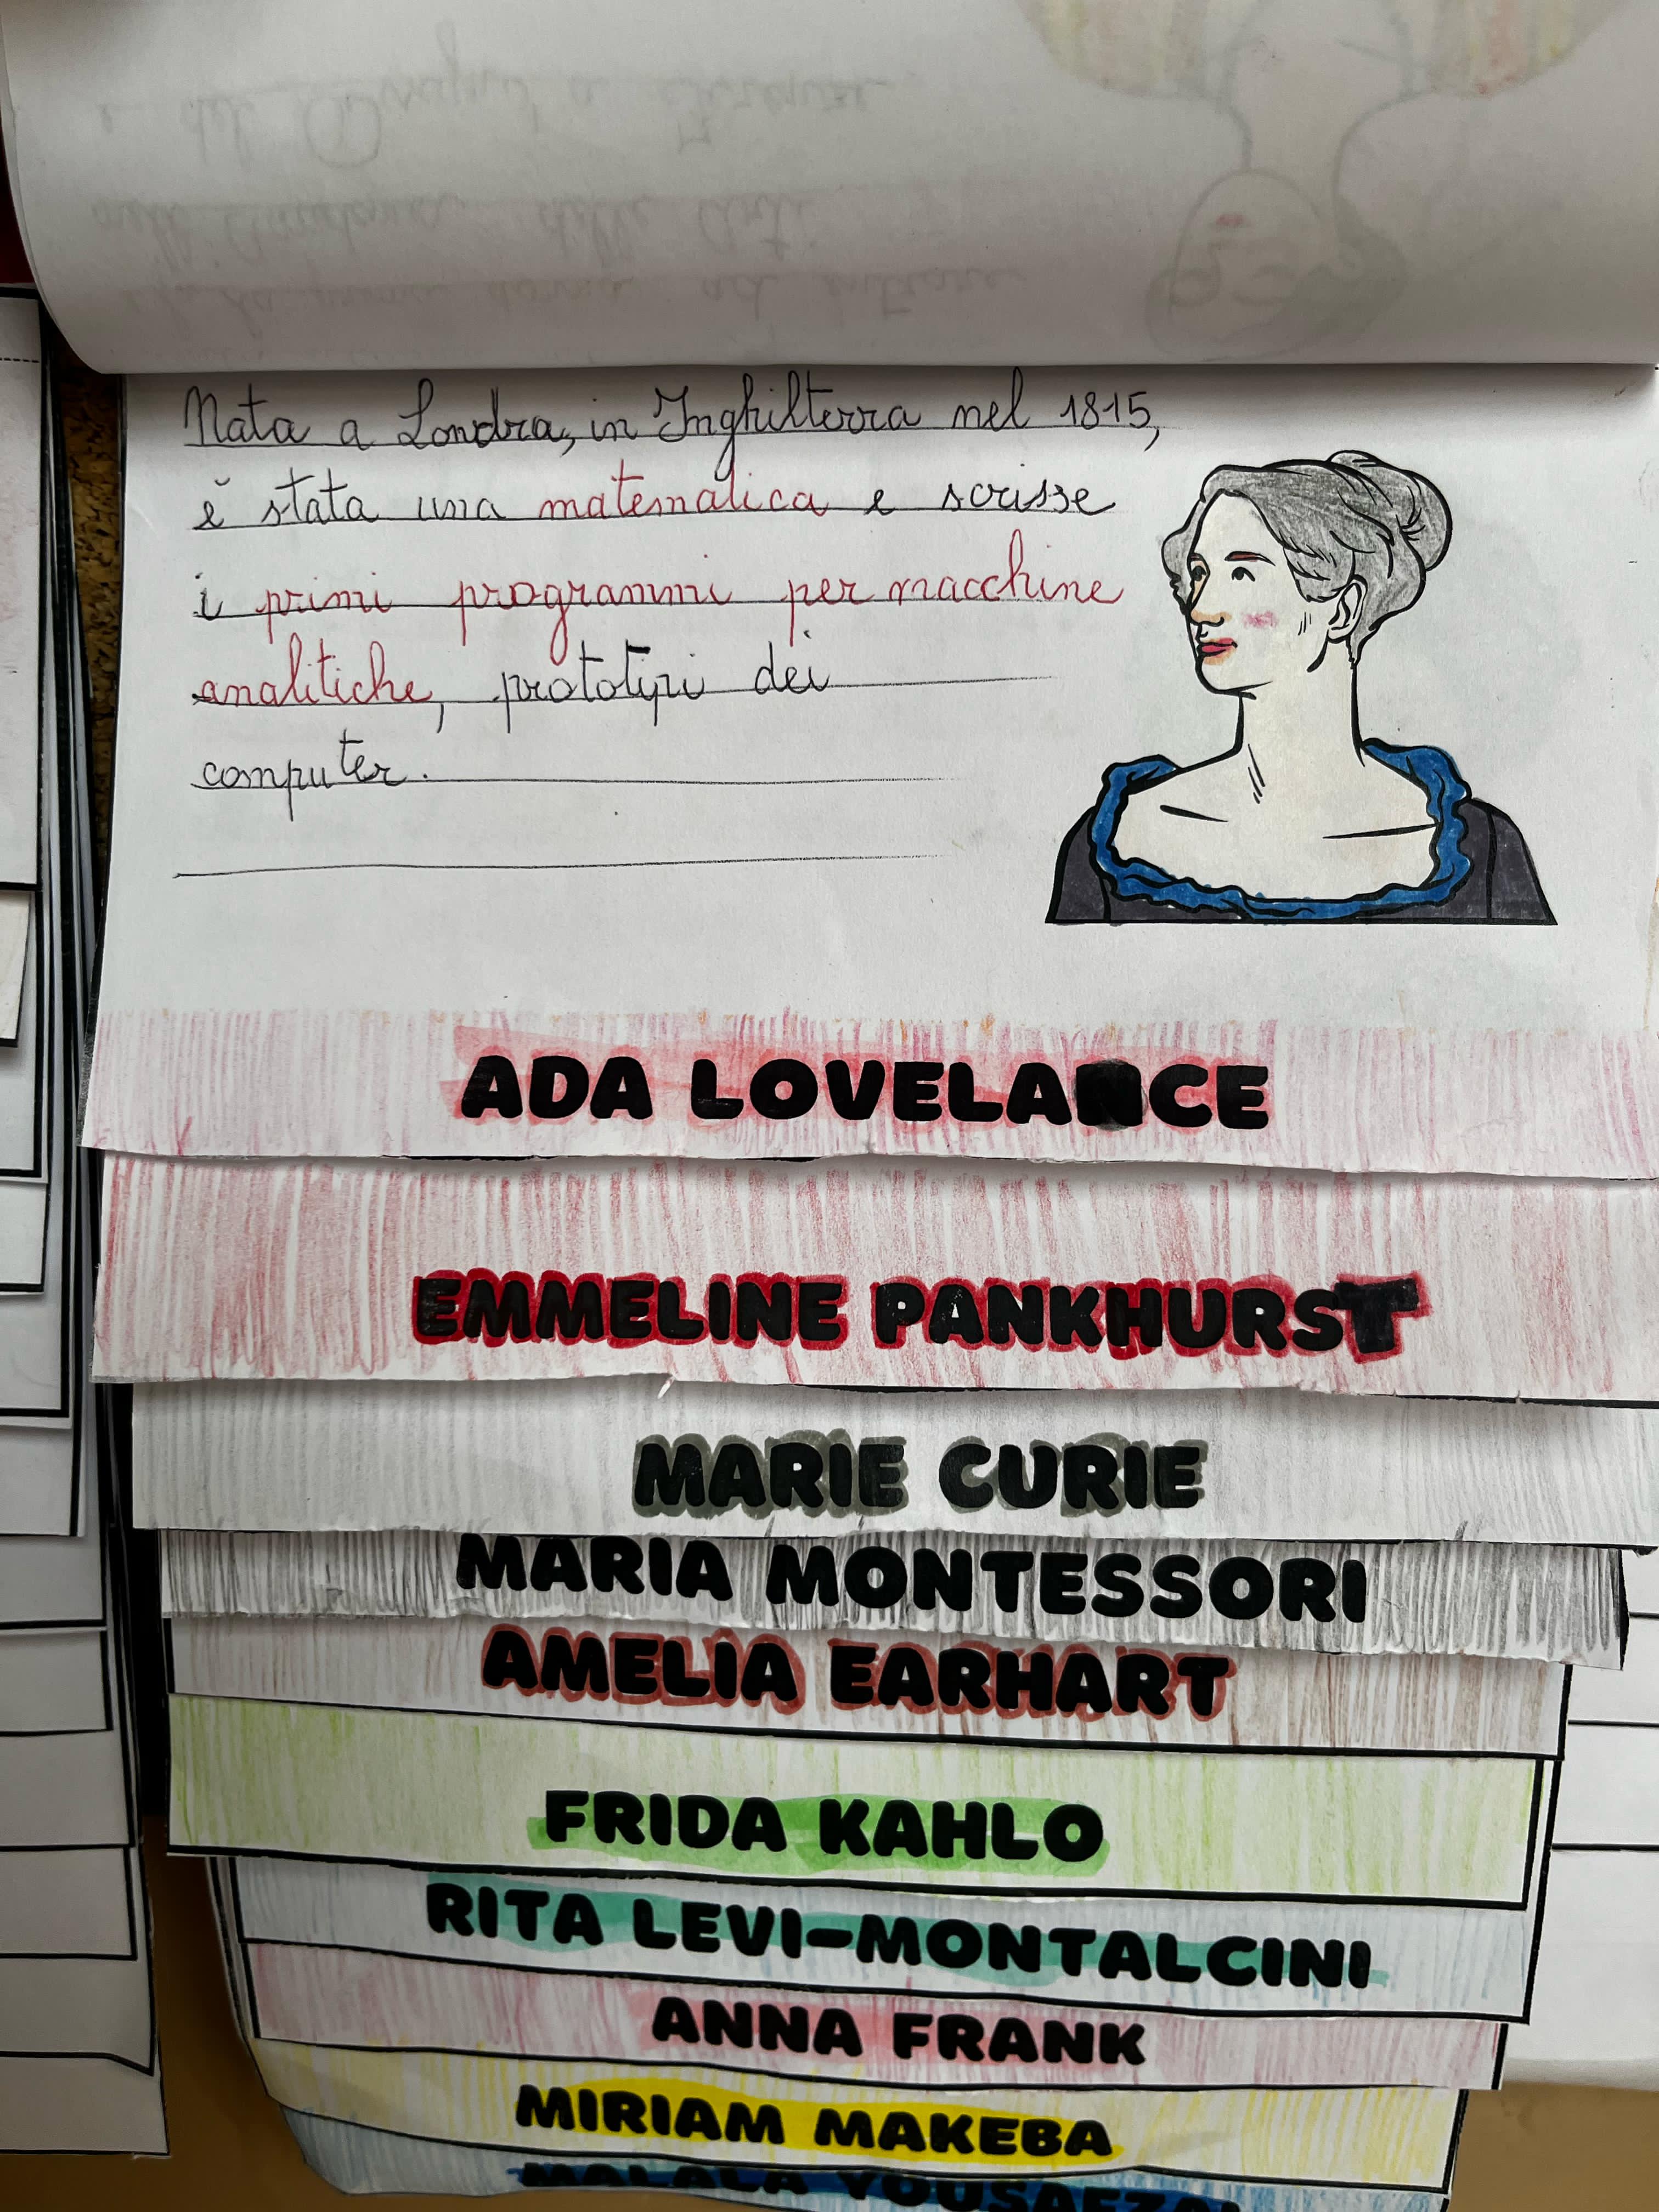 Nata a Londra, in Inghilterra nel 1815,
è stata una matematica e scrisse
i primi programmi per macchine
analitiche, prototipi dei
computer.
ADA LOVELANCE
EMMELINE PANKHURST
MARIE CURIE
MARIA MONTESSORI
AMELIA EARHART
FRIDA KAHLO
RITA LEVI-MONTALCINI
ANNA FRANK
MIRIAM MAKEBA
MALALA YOUSAFZAI